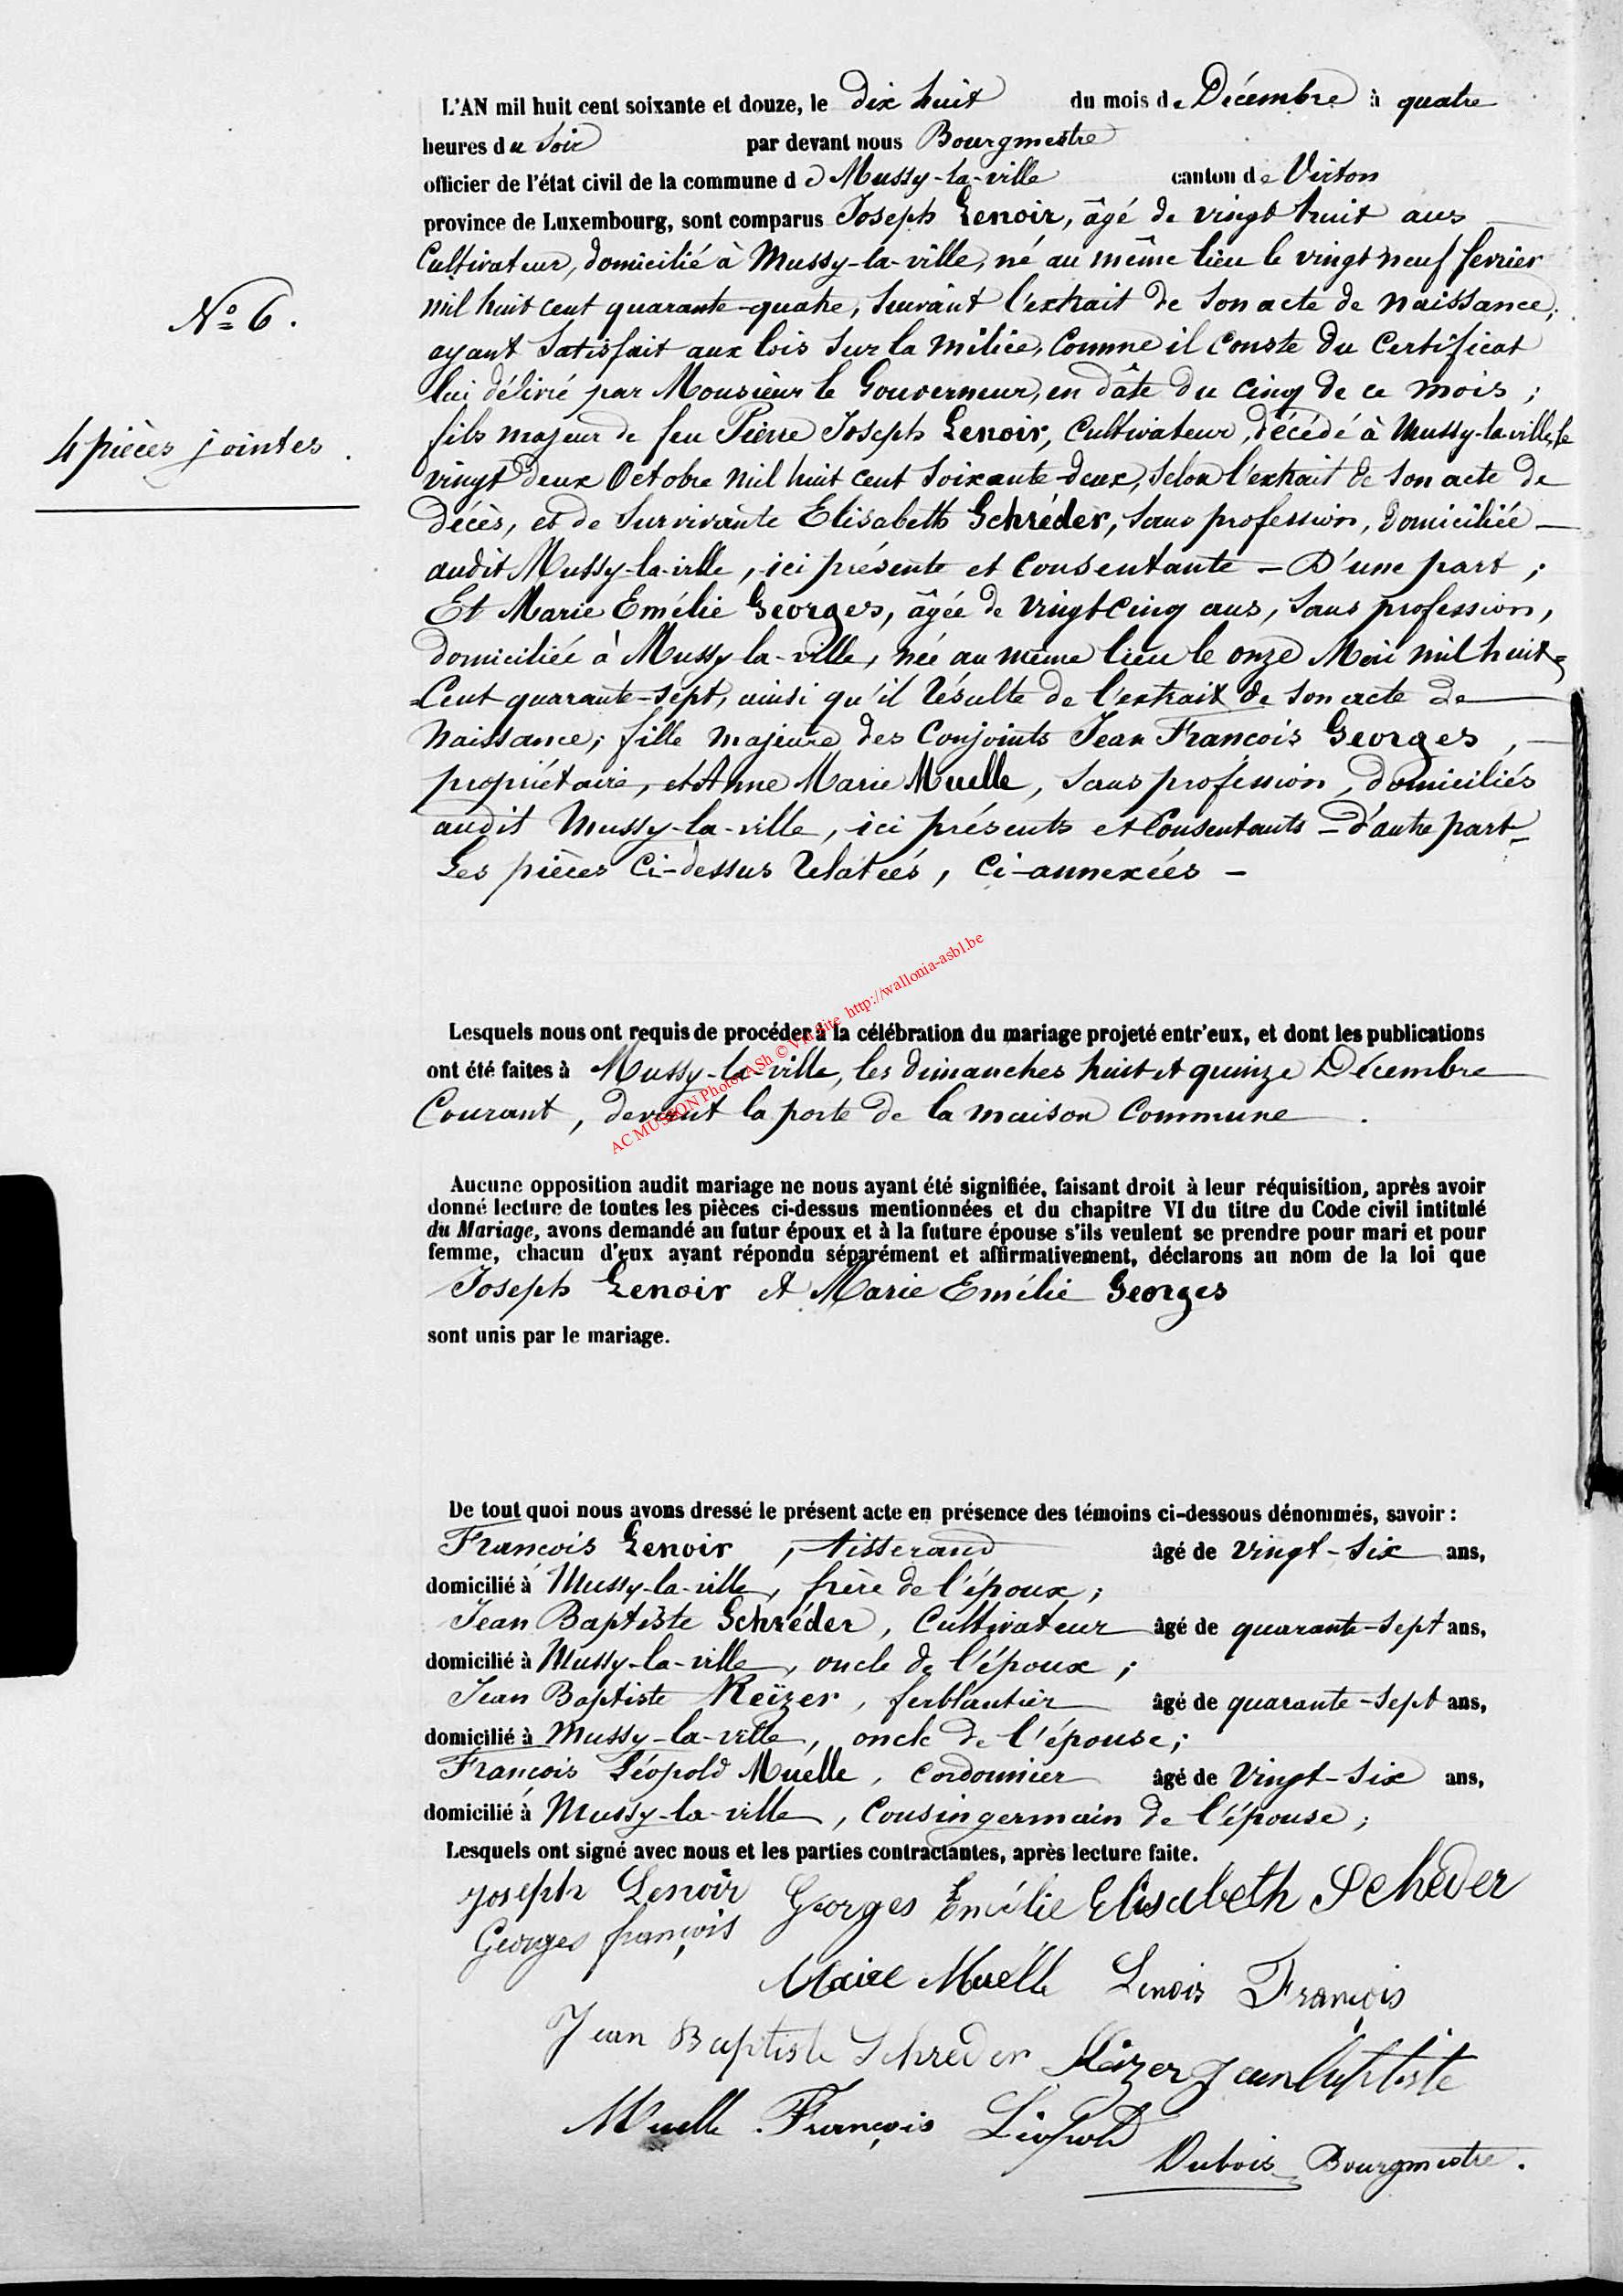 L'AN mil huit cent soixante et douze, le dix huit du mois de Décembre à quatre
heures du Soir par devant nous Bourgmestre
officier de l'état civil de la commune de Mussy-la-ville canton de Virton
province de Luxembourg, sont comparus Joseph Lenoir, âgé de vingt huit ans
Cultivateur, domicilié à Mussy-la-ville, né au même lieu le vingt neuf fevrier
N° 6.
mil huit cent quarante-quatre, suivant l'extrait de son acte de naissance,
ayant Satisfait aux lois sur la milice, Comme il Conste du Certificat
lui délivré par Monsieur le Gouverneur, en dâte du cinq de ce mois ;
4 pièces jointes.
fils majeur de feu Pierre Joseph Lenoir, Cultivateur, décédé à Mussy-la-ville, le
vingt deux Octobre mil huit cent soixante-deux, Selon l'extrait de son acte de
décès, et de Survivante Elisabeth Schréder, Sans profession, domiciliée —
audit Mussy-la-ville, ici présente et Consentante — D'une part ;
Et Marie Emélie Georges, âgée de vingt Cinq ans, Sans profession,
domiciliée à Mussy-la-ville, née au même lieu le onze Mai mil huit=
=Cent quarante-sept, ainsi qu'il résulte de l'extrait de son acte de —
Naissance; fille majeure des Conjoints Jean François Georges, —
propriétaire, et Anne Marie Muelle, Sans profession, domiciliés
audit Mussy-la-ville, ici présents et Consentants — d'autre part —
Les pièces Ci-dessus relatées, Ci-annexées —
AC MUSSON Photos ASh © Via Site http://wallonia-asbl.be
Lesquels nous ont requis de procéder à la célébration du mariage projeté entr'eux, et dont les publications
ont été faites à Mussy-la-ville, les dimanches huit et quinze Décembre
Courant, devant la porte de la maison Commune.
Aucune opposition audit mariage ne nous ayant été signifiée, faisant droit à leur réquisition, après avoir
donné lecture de toutes les pièces ci-dessus mentionnées et du chapitre VI du titre du Code civil intitulé
du Mariage, avons demandé au futur époux et à la future épouse s'ils veulent se prendre pour mari et pour
femme, chacun d'eux ayant répondu séparément et affirmativement, déclarons au nom de la loi que
Joseph Lenoir et Marie Emélie Georges
sont unis par le mariage.
De tout quoi nous avons dressé le présent acte en présence des témoins ci-dessous dénommés, savoir :
François Lenoir, tisserand âgé de vingt-six ans,
domicilié à Mussy-la-ville, frère de l'époux ;
Jean Baptiste Schréder, Cultivateur âgé de quarante-sept ans,
domicilié à Mussy-la-ville, oncle de l'époux ;
Jean Baptiste Keïzer, ferblantier âgé de quarante-sept ans,
domicilié à Mussy-la-ville, oncle de l'épouse ;
François Léopold Muelle, cordonnier âgé de Vingt-six ans,
domicilié à Mussy-la-ville, Cousin germain de l'épouse ;
Lesquels ont signé avec nous et les parties contractantes, après lecture faite.
Joseph Lenoir Georges Emélie Elisabeth Schéder
Georges françois
Marie Muelle Lenoir François
Jean Baptiste Schreder Keizer Jean Baptiste
Muelle François Léopold
Dubois Bourgmestre.